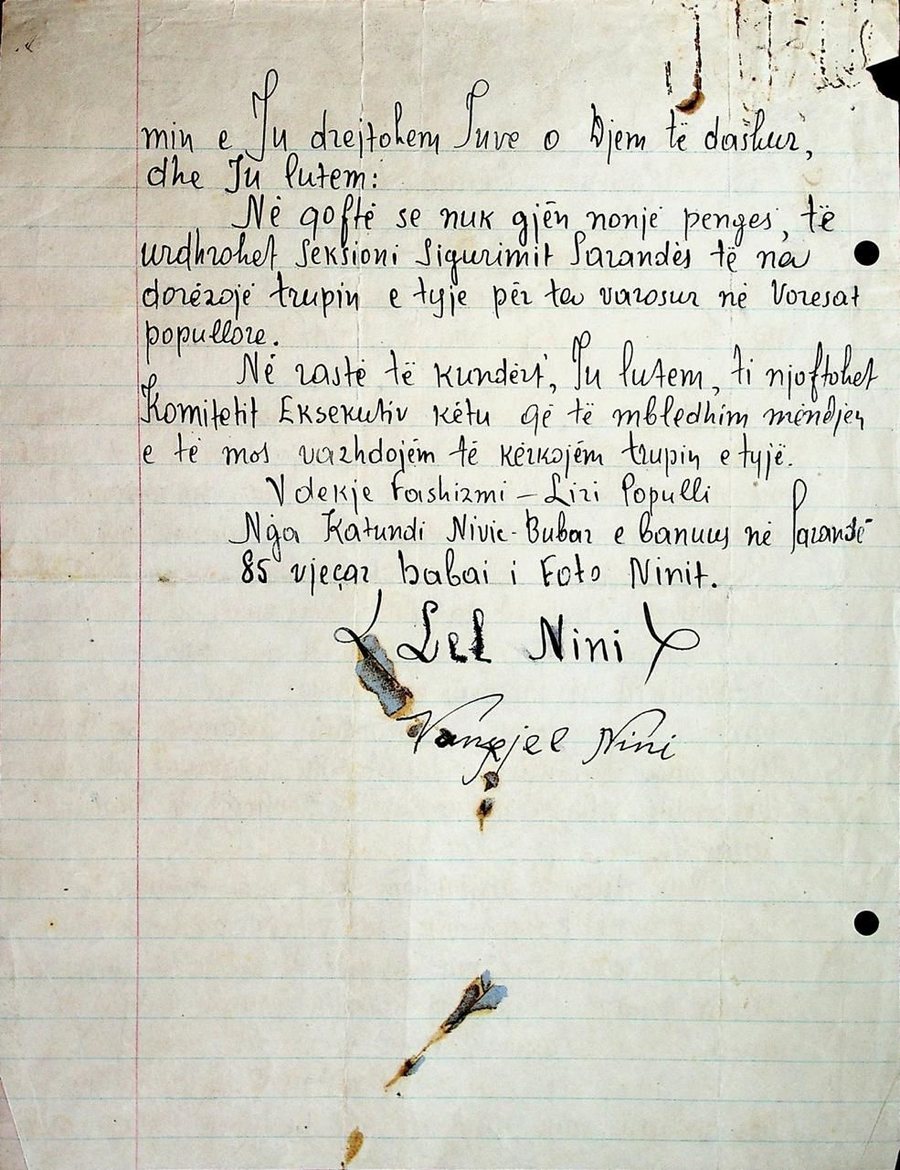 min e Ju drejtohem Juve o Djem të dashur,
dhe Ju lutem:
Në qoftë se nuk gjën nonjë penges, të
urdhrohet Seksioni Sigurimit Sarandës të na
dorëzojë trupin e tyje për ta varosur në Voresat
popullore.
Në rastë të kundërt, Ju lutem, ti njoftohet
Komitetit Eksekutiv këtu që të mbledhim mëndjen
e të mos vazhdojëm të kërkojëm trupin e tyjë.
Vdekje Fashizmi – Liri Populli
Nga Katundi Nivic-Bubar e banuus në Sarandë
85 vjeçar babai i Foto Ninit.
Lel Nini
Vangjel Nini